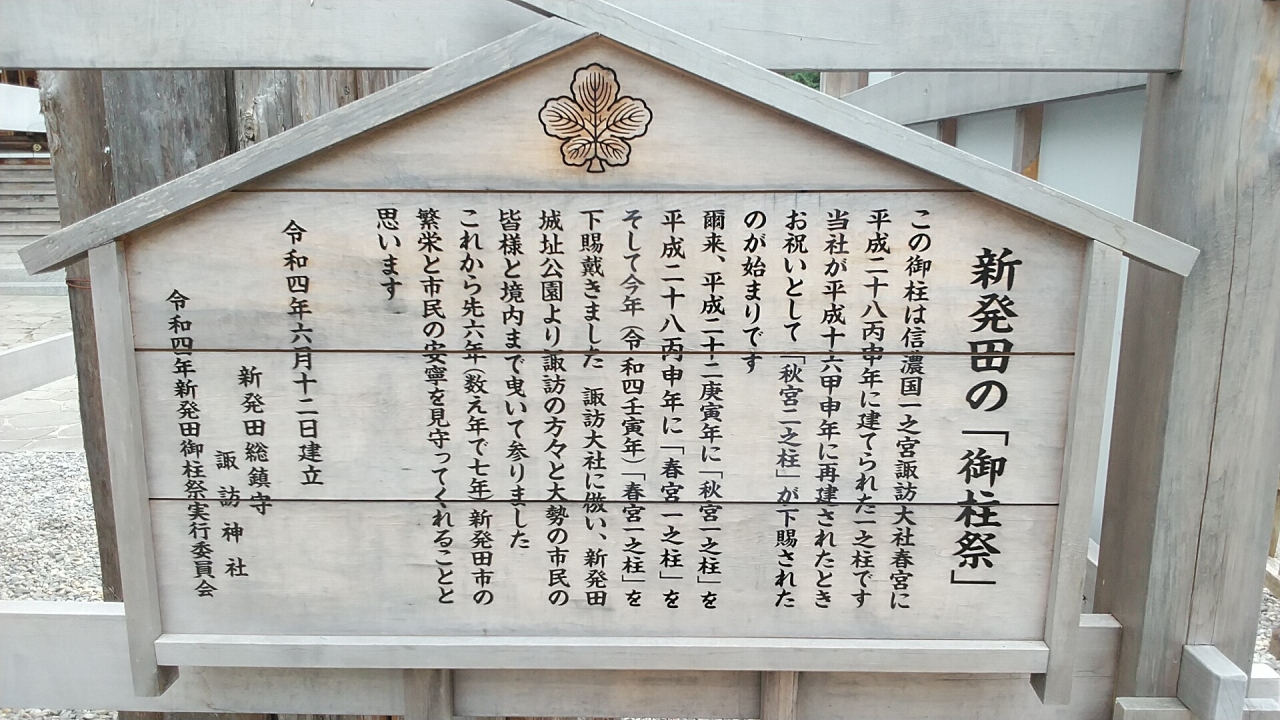 新発田の「御柱祭」
この御柱は信濃国一之宮諏訪大社春宮に
平成二十八丙申年に建てられた一之柱です
当社が平成十六甲申年に再建されたとき
お祝いとして「秋宮二之柱」が下賜された
のが始まりです
爾来、平成二十二庚寅年に「秋宮一之柱」を
平成二十八丙申年に「春宮一之柱」を
そして今年(令和四壬寅年)「春宮一之柱」を
下賜戴きました 諏訪大社に倣い、新発田
城址公園より諏訪の方々と大勢の市民の
皆様と境内まで曳いて参りました
これから先六年(数え年で七年)新発田市の
繁栄と市民の安寧を見守ってくれることと
思います
令和四年六月十二日建立
新発田総鎮守
諏訪神社
令和四年新発田御柱祭実行委員会